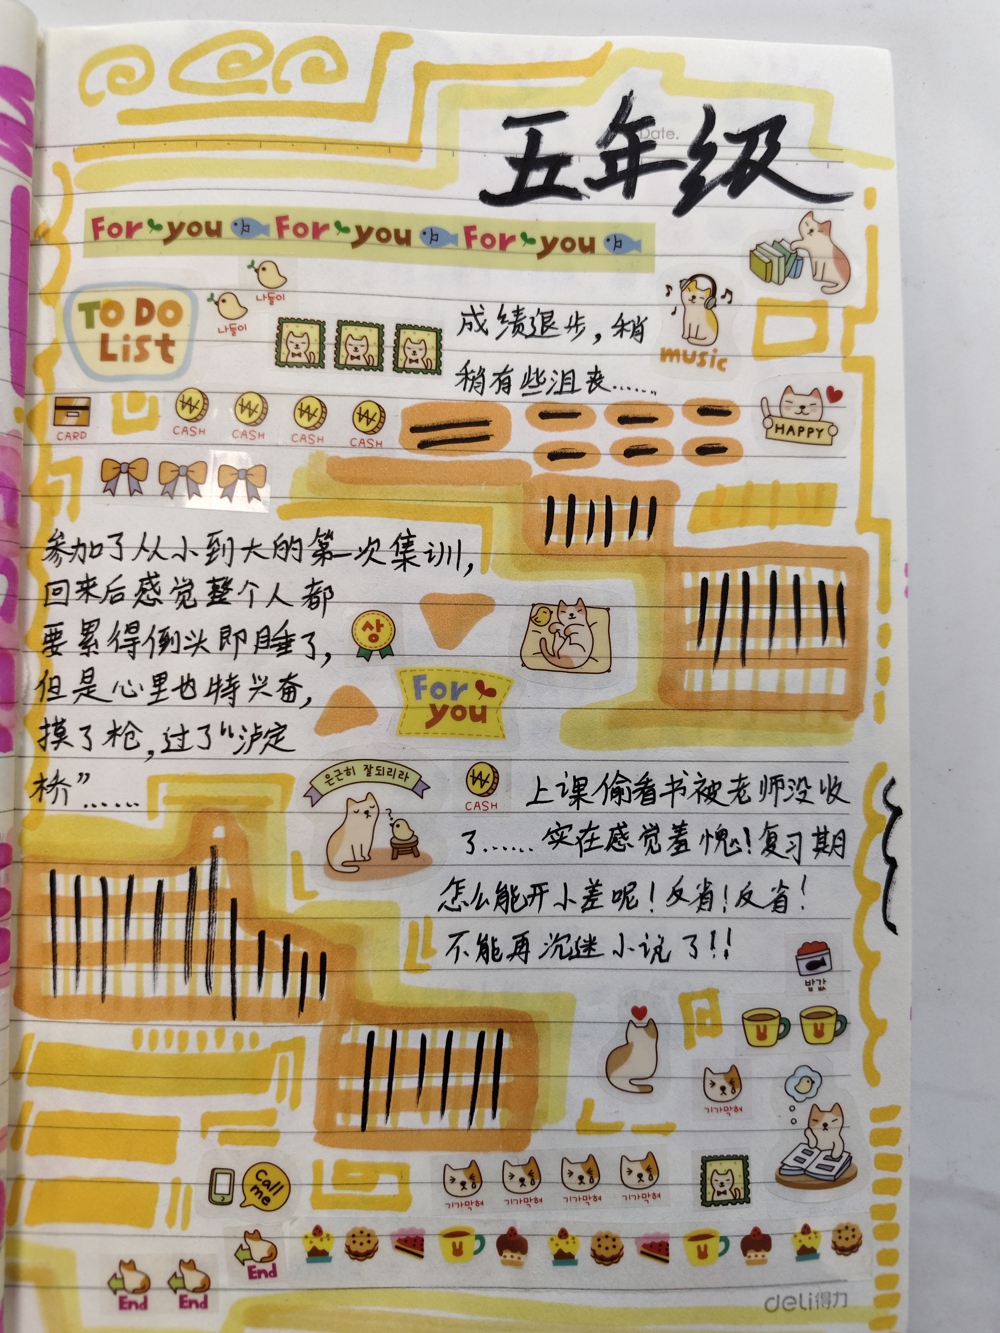 Date.
五年级
For you For you For you
TO DO
List
나들이
나들이
成绩退步，稍
稍有些沮丧……
music
HAPPY
CARD
CASH CASH CASH CASH
参加了从小到大的第一次集训，
回来后感觉整个人都
要累得倒头即睡了，
但是心里也特兴奋，
摸了枪，过了“泸定
桥”……
상
For
you
은근히 잘되리라
CASH
上课偷看书被老师没收
了……实在感觉羞愧！复习期
怎么能开小差呢！反省！反省！
不能再沉迷小说了！！
밥값
기가막혀
Call
me
기가막혀 기가막혀 기가막혀 기가막혀
End
End End
deli得力